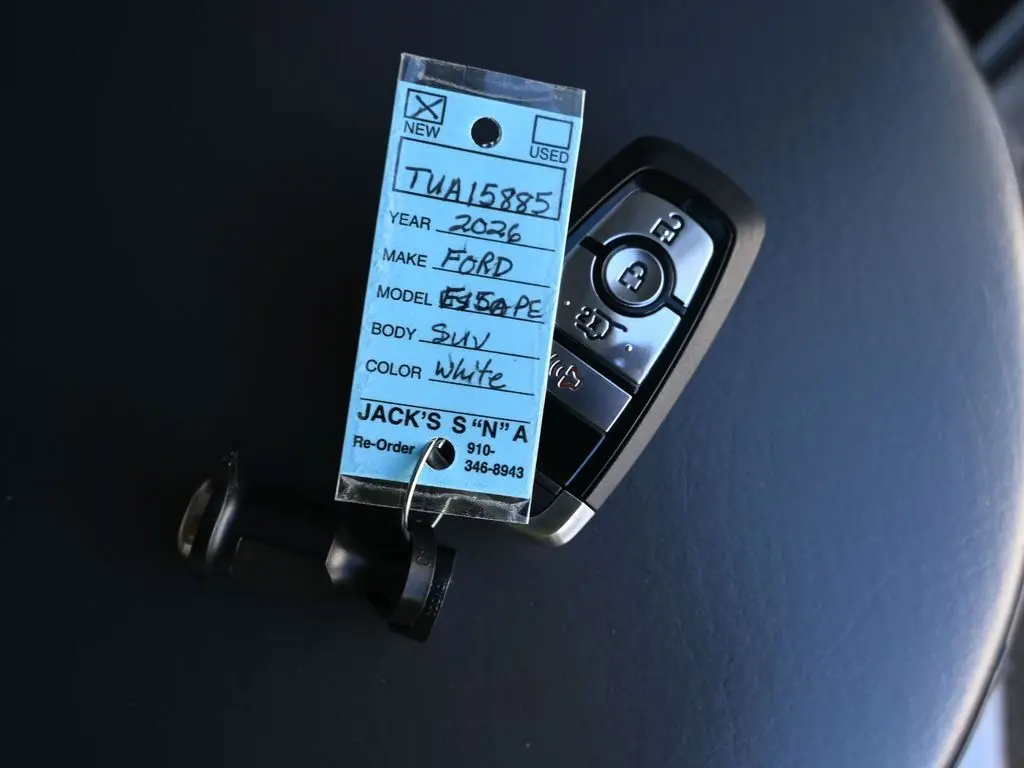 NEW
USED
TUA15885
YEAR 2026
MAKE FORD
MODEL ESCAPE
BODY SUV
COLOR White
JACK'S S "N" A
Re-Order 910-
346-8943